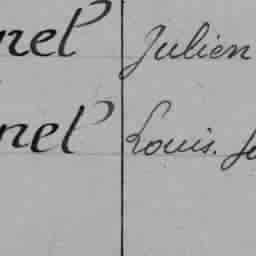 nel Julien
nel Louis. Jo